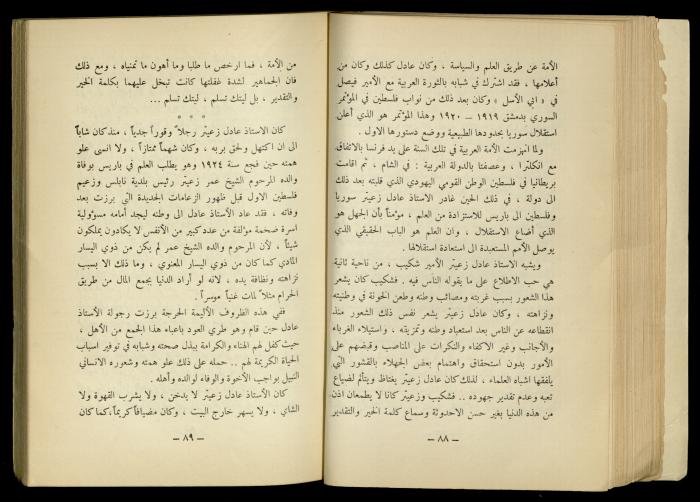 الأمة عن طريق العلم والسياسة ، وكان عادل كذلك وكان من
أعلامها ، فقد اشترك في شبابه بالثورة العربية مع الأمير فيصل
في « ابي الأسل » وكان بعد ذلك من نواب فلسطين في المؤتمر
السوري بدمشق ١٩١٩ – ١٩٢٠ وهذا المؤتمر هو الذي أعلن
استقلال سوريا بحدودها الطبيعية ووضع دستورها الاول .
ولما انهزمت الأمة العربية في تلك السنة على يد فرنسا بالاتفاق
مع انكلترا ، وعصفتا بالدولة العربية : في الشام ، ثم اقامت
بريطانيا في فلسطين الوطن القومي اليهودي الذي قلبته بعد ذلك
الى دولة ، في ذلك الحين غادر الاستاذ عادل زعيتر سوريا
وفلسطين الى باريس للاستزادة من العلم ، مؤمناً بأن الجهل هو
الذي أضاع الاستقلال ، وان العلم هو الباب الحقيقي الذي
يوصل الأمم المستعبدة الى استعادة استقلالها .
ويشبه الاستاذ عادل زعيتر الأمير شكيب ، من ناحية ثانية
هي حب الاطلاع على ما يقوله الناس فيه . فشكيب كان يشعر
هذا الشعور بسبب غربته ومصائب وطنه وطعن الخونة في وطنيته
ونزاهته ، وكان عادل زعيتر يشعر نفس ذلك الشعور منذ
انقطاعه عن الناس بعد استعباد وطنه وتمزيقه ، واستيلاء الغرباء
والأجانب وغير الاكفاء والنكرات على المناصب وقبضهم على
الأمور بدون استحقاق واهتمام بعض الجهلاء بالقشور التي
يلفقها اشباه العلماء ، لذلك كان عادل زعيتر يغتاظ ويتألم لضياع
تعبه وعدم تقدير جهوده .. فشكيب وزعيتر كانا لا يطمعان اذن
من هذه الدنيا بغير حسن الاحدوثة وسماع كلمة الخير والتقدير
– ٨٨ –
من الأمة ، فما ارخص ما طلبا وما أهون ما تمنياه ، ومع ذلك
فان الجماهير لشدة غفلتها كانت تبخل عليهما بكلمة الخير
والتقدير ، بل ليتك تسلم ، ليتك تسلم ...
* * *
كان الاستاذ عادل زعيتر رجلاً وقوراً جدياً ، منذ كان شاباً
الى ان اكتهل ولحق بربه ، وكان شهماً ممتازاً ، ولا انسى علو
همته حين فجع سنة ١٩٢٤ وهو يطلب العلم في باريس بوفاة
والده المرحوم الشيخ عمر زعيتر رئيس بلدية نابلس وزعيم
فلسطين الاول قبل ظهور الزعامات الجديدة التي برزت بعد
وفاته ، فقد عاد الأستاذ عادل الى وطنه ليجد أمامه مسؤولية
اسرة ضخمة مؤلفة من عدد كبير من الأنفس لا يكادون يملكون
شيئاً ، لأن المرحوم والده الشيخ عمر لم يكن من ذوي اليسار
المادي كما كان من ذوي اليسار المعنوي ، وما ذلك الا بسبب
نزاهته ونظافة يده ، لانه لو أراد الدنيا بجمع المال من طريق
الحرام مثلاً لمات غنياً موسراً .
ففي هذه الظروف الأليمة الحرجة برزت رجولة الأستاذ
عادل حين قام وهو طري العود باعباء هذا الجمع من الأهل ،
حيث كفل لهم الهناء والكرامة ببذل صحته وشبابه في توفير اسباب
الحياة الكريمة لهم .. حمله على ذلك علو همته وشعوره الانساني
النبيل بواجب الأخوة والوفاء لوالده وأهله .
كان الأستاذ عادل زعيتر لا يدخن ، ولا يشرب القهوة ولا
الشاي ، ولا يسهر خارج البيت ، وكان مضيافاً كريماً ، كما كان
– ٨٩ –